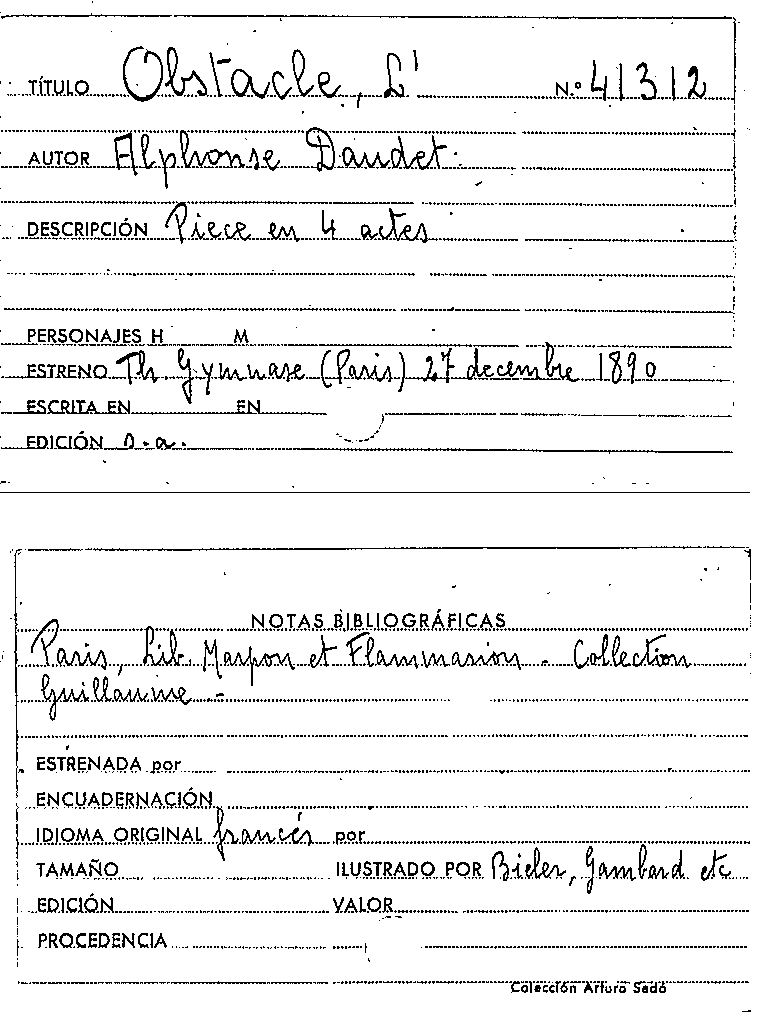 TÍTULO Obstacle, L' N.º 41312
AUTOR Alphonse Daudet.
DESCRIPCIÓN Piece en 4 actes
PERSONAJES H M
ESTRENO Th. Gymnase (Paris) 27 decembre 1890
ESCRITA EN EN
EDICIÓN s.a.
NOTAS BIBLIOGRÁFICAS
Paris, Lib. Marpon et Flammarion - Collection
Guillaume.-
ESTRENADA por
ENCUADERNACIÓN
IDIOMA ORIGINAL francés por
TAMAÑO ILUSTRADO POR Bieler, Gambard etc
EDICIÓN VALOR
PROCEDENCIA
Colección Arturo Sedó